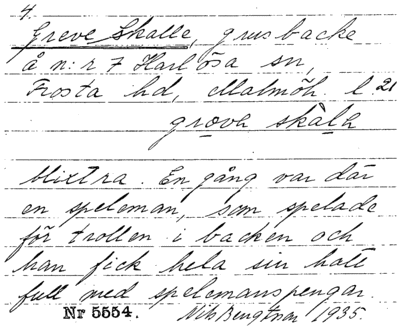 4.
Greve Skalle, grusbacke
å n:r 7 Harlösa sn,
Frosta hd, Malmöh. l 21
grøvə skàlə
blixtra. En gång var där
en speleman, som spelade
för trollen i backen och
han fick hela sin hatt
full med spelemanspengar.
Nr 5554. Nils Bengtsson 1935